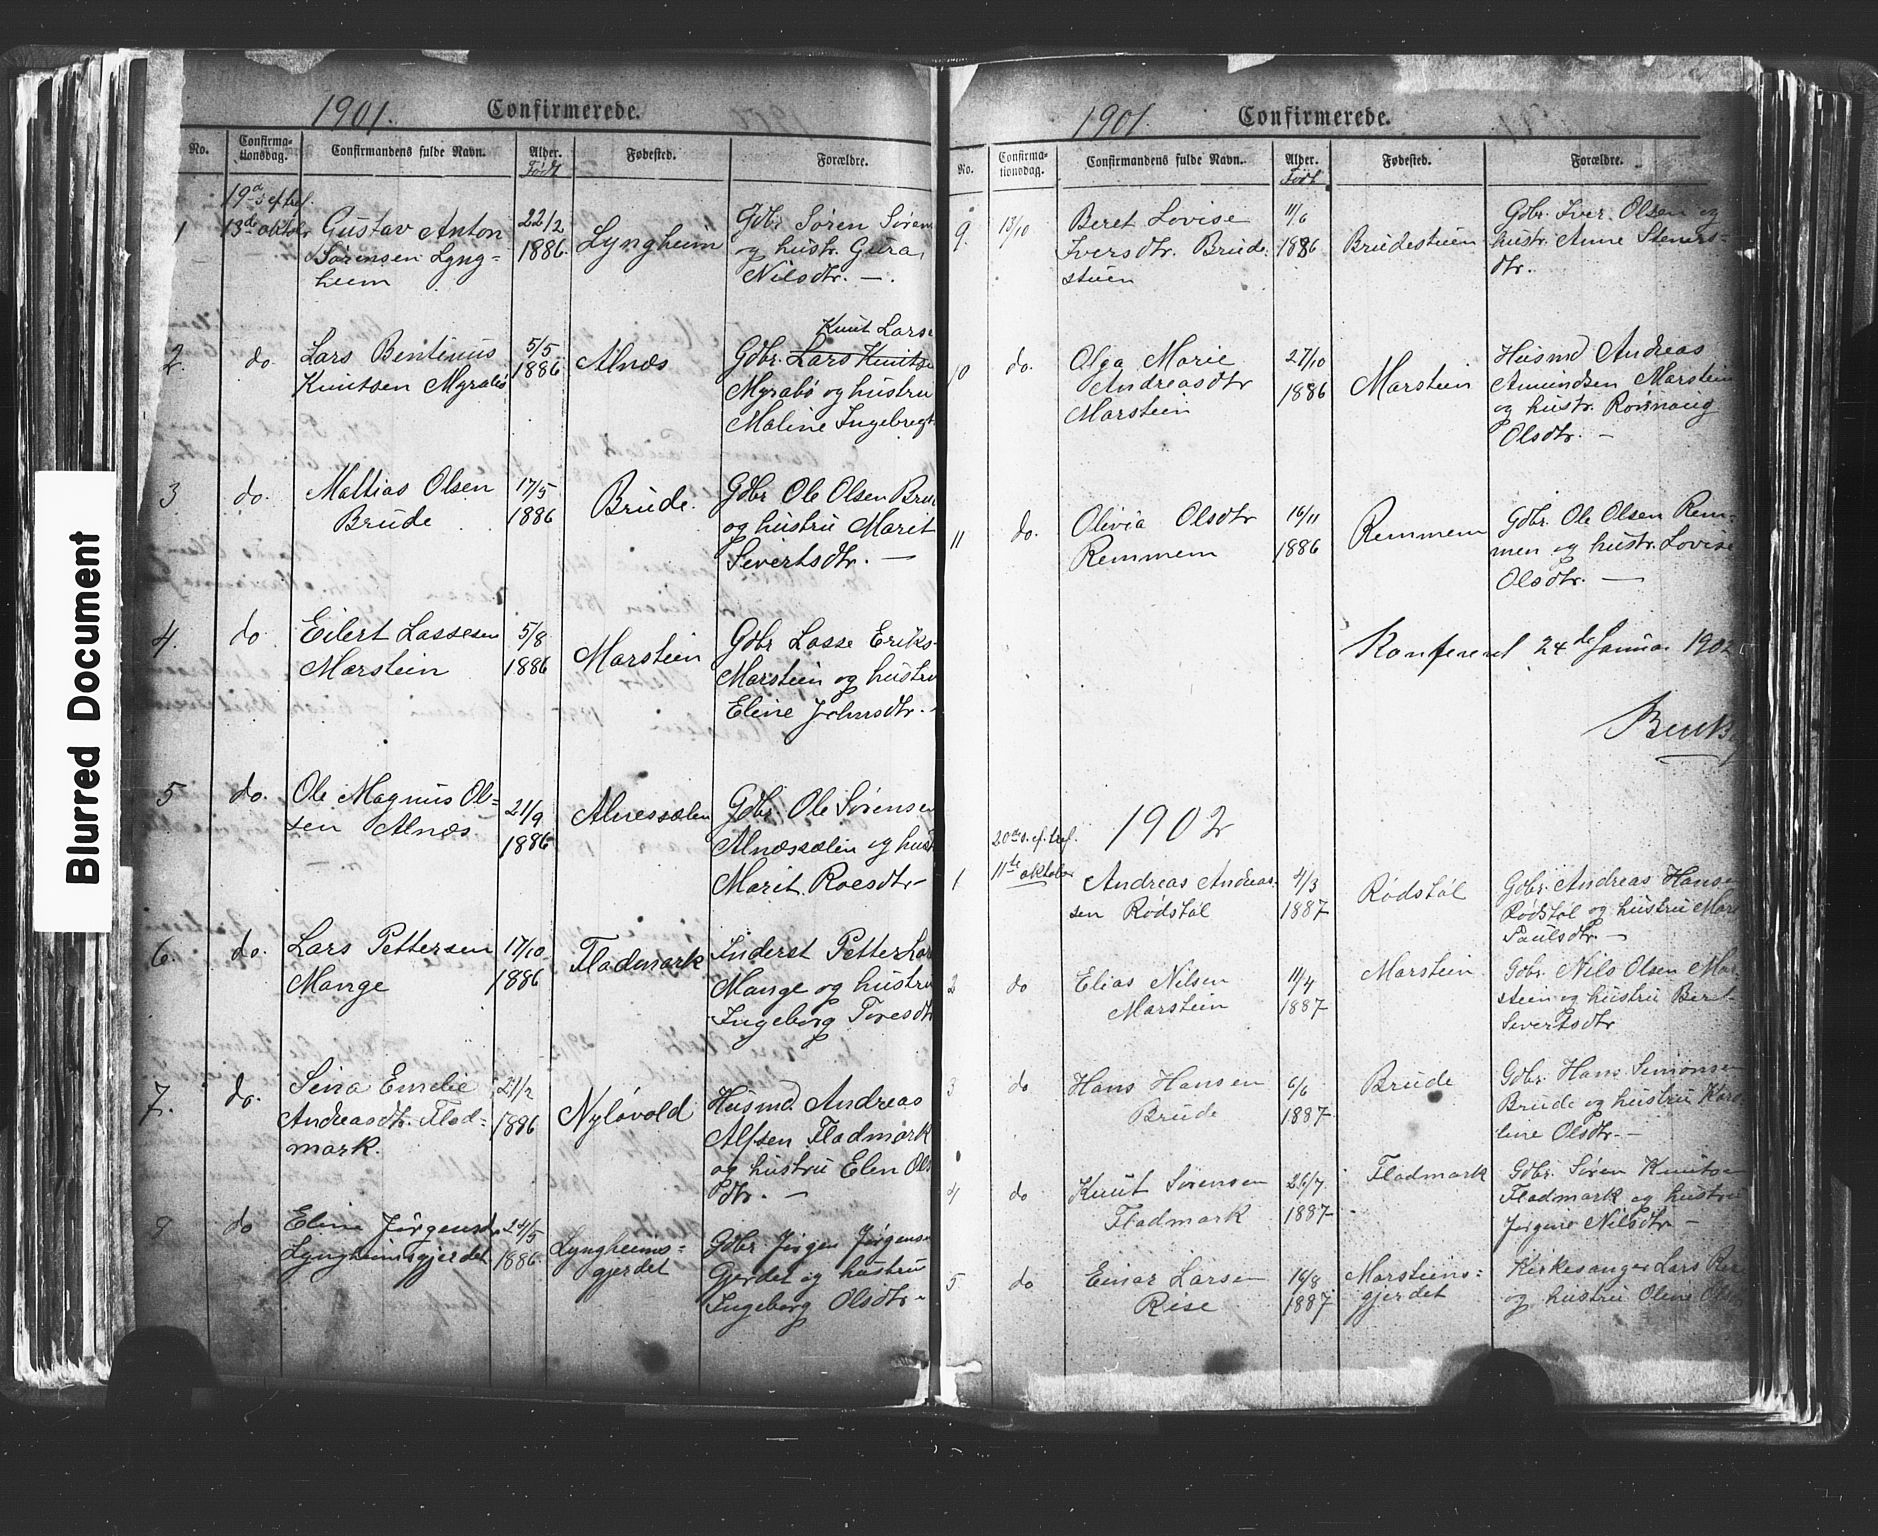 Blurred Document
1901. Confirmerede.
No. Confirma-tionsdag. Confirmandens fulde Navn. Alder. Født Fødested. Forældre.
19de s. ef. tref.
1 13de oktobr Gustav Anton 22/2 Lyngheim Gdbr Søren Søren
Sørensen Lyng= 1886. og hustr. Gura
heim Nilsdtr. —
Knut Lars
2. do. Lars Bentinus 5/5 Alnæs Gdbr. Lars Knuts
Knutsen Myrabø 1886 Myrabø og hustru
Maline Ingebregt
3 do. Mattias Olsen 17/5 Brude. Gdbr Ole Olsen Bru
Brude 1886 og hustru Marit
Severtsdtr. —
4. do Eilert Lassesen 5/8 Marstein Gdbr Lasse Eriks
Marstein 1886 Marstein og hustru
Eline Johnsdtr. -
5 do. Ole Magnus Ol= 21/9 Alnessælen Gdbr. Ole Sørensen
sen Alnæs. 1886 Alnæssælen og hust
Marit Roesdtr-
6. do. Lars Pettersen 17/10 Fladmark Inderst Petter Lar
Mange 1886 Mange og hustru
Ingeborg Toresdt
7. do. Sina Emelie 21/2 Nyløvold Husmd. Andreas
Andreasdtr. Flad= 1886 Alfsen Fladmark
mark. og hustru Elen Ols
dtr. —
8 do Eline Jørgensdtr 24/5 Lyngheims= Gdbr Jørgen Jørgensen
Lyngheimsgjerdet 1886. gjerdet Gjerdet og hustru
Ingeborg Olsdtr-
1901. Confirmerede.
No. Confirma-tionsdag. Confirmandens fulde Navn. Alder. Født Fødested. Forældre.
9. 13/10 Beret Lovise 11/6 Brudestuen Gdbr. Iver Olsen og
Iversdtr. Brude. 1886 hustr. Anne Steners-
stuen dtr.
10 do. Olga Marie 27/10 Marstein Husmd Andreas
Andreasdtr 1886 Amundsen Marstein
Marstein og hustr. Rønnaug
Olsdtr. —
11 do. Olivia Olsdtr 16/11 Remmem Gdbr. Ole Olsen Rem=
Remmem 1886 men og hustr. Lovise
Olsdtr. —
Konfereret 24de Januar 1902
1902
20de s. ef. tref.
1 11te oktober Andreas Andreas- 4/3 Rødstøl Gdbr. Andreas Hansen
sen Rødstøl 1887 Rødstøl og hustru Mari
Paulsdtr. —
2 do Elias Nilsen 11/4 Marstein Gdbr. Nils Olsen Mar=
Marstein 1887 stein og hustru Beret
Severtsdtr
3 do Hans Hansen 6/6 Brude Gdbr. Hans Simonsen
Brude 1887 Brude og hustru Karo
line Olsdtr. —
4 do Knut Sørensen 26/7 Fladmark Gdbr. Søren Knutsen
Fladmark 1887 Fladmark og hustru
Jørgine Nilsdtr —
5 do Einar Larsen 16/8 Marsteins= Kirkesanger Lars Rise
Rise 1887 gjerdet og hustru Oline Ols